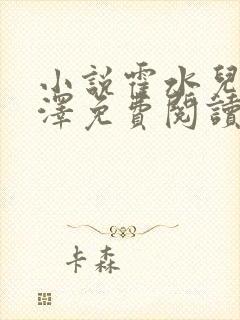 小說霍水兒
澤免費閱讀
卡森